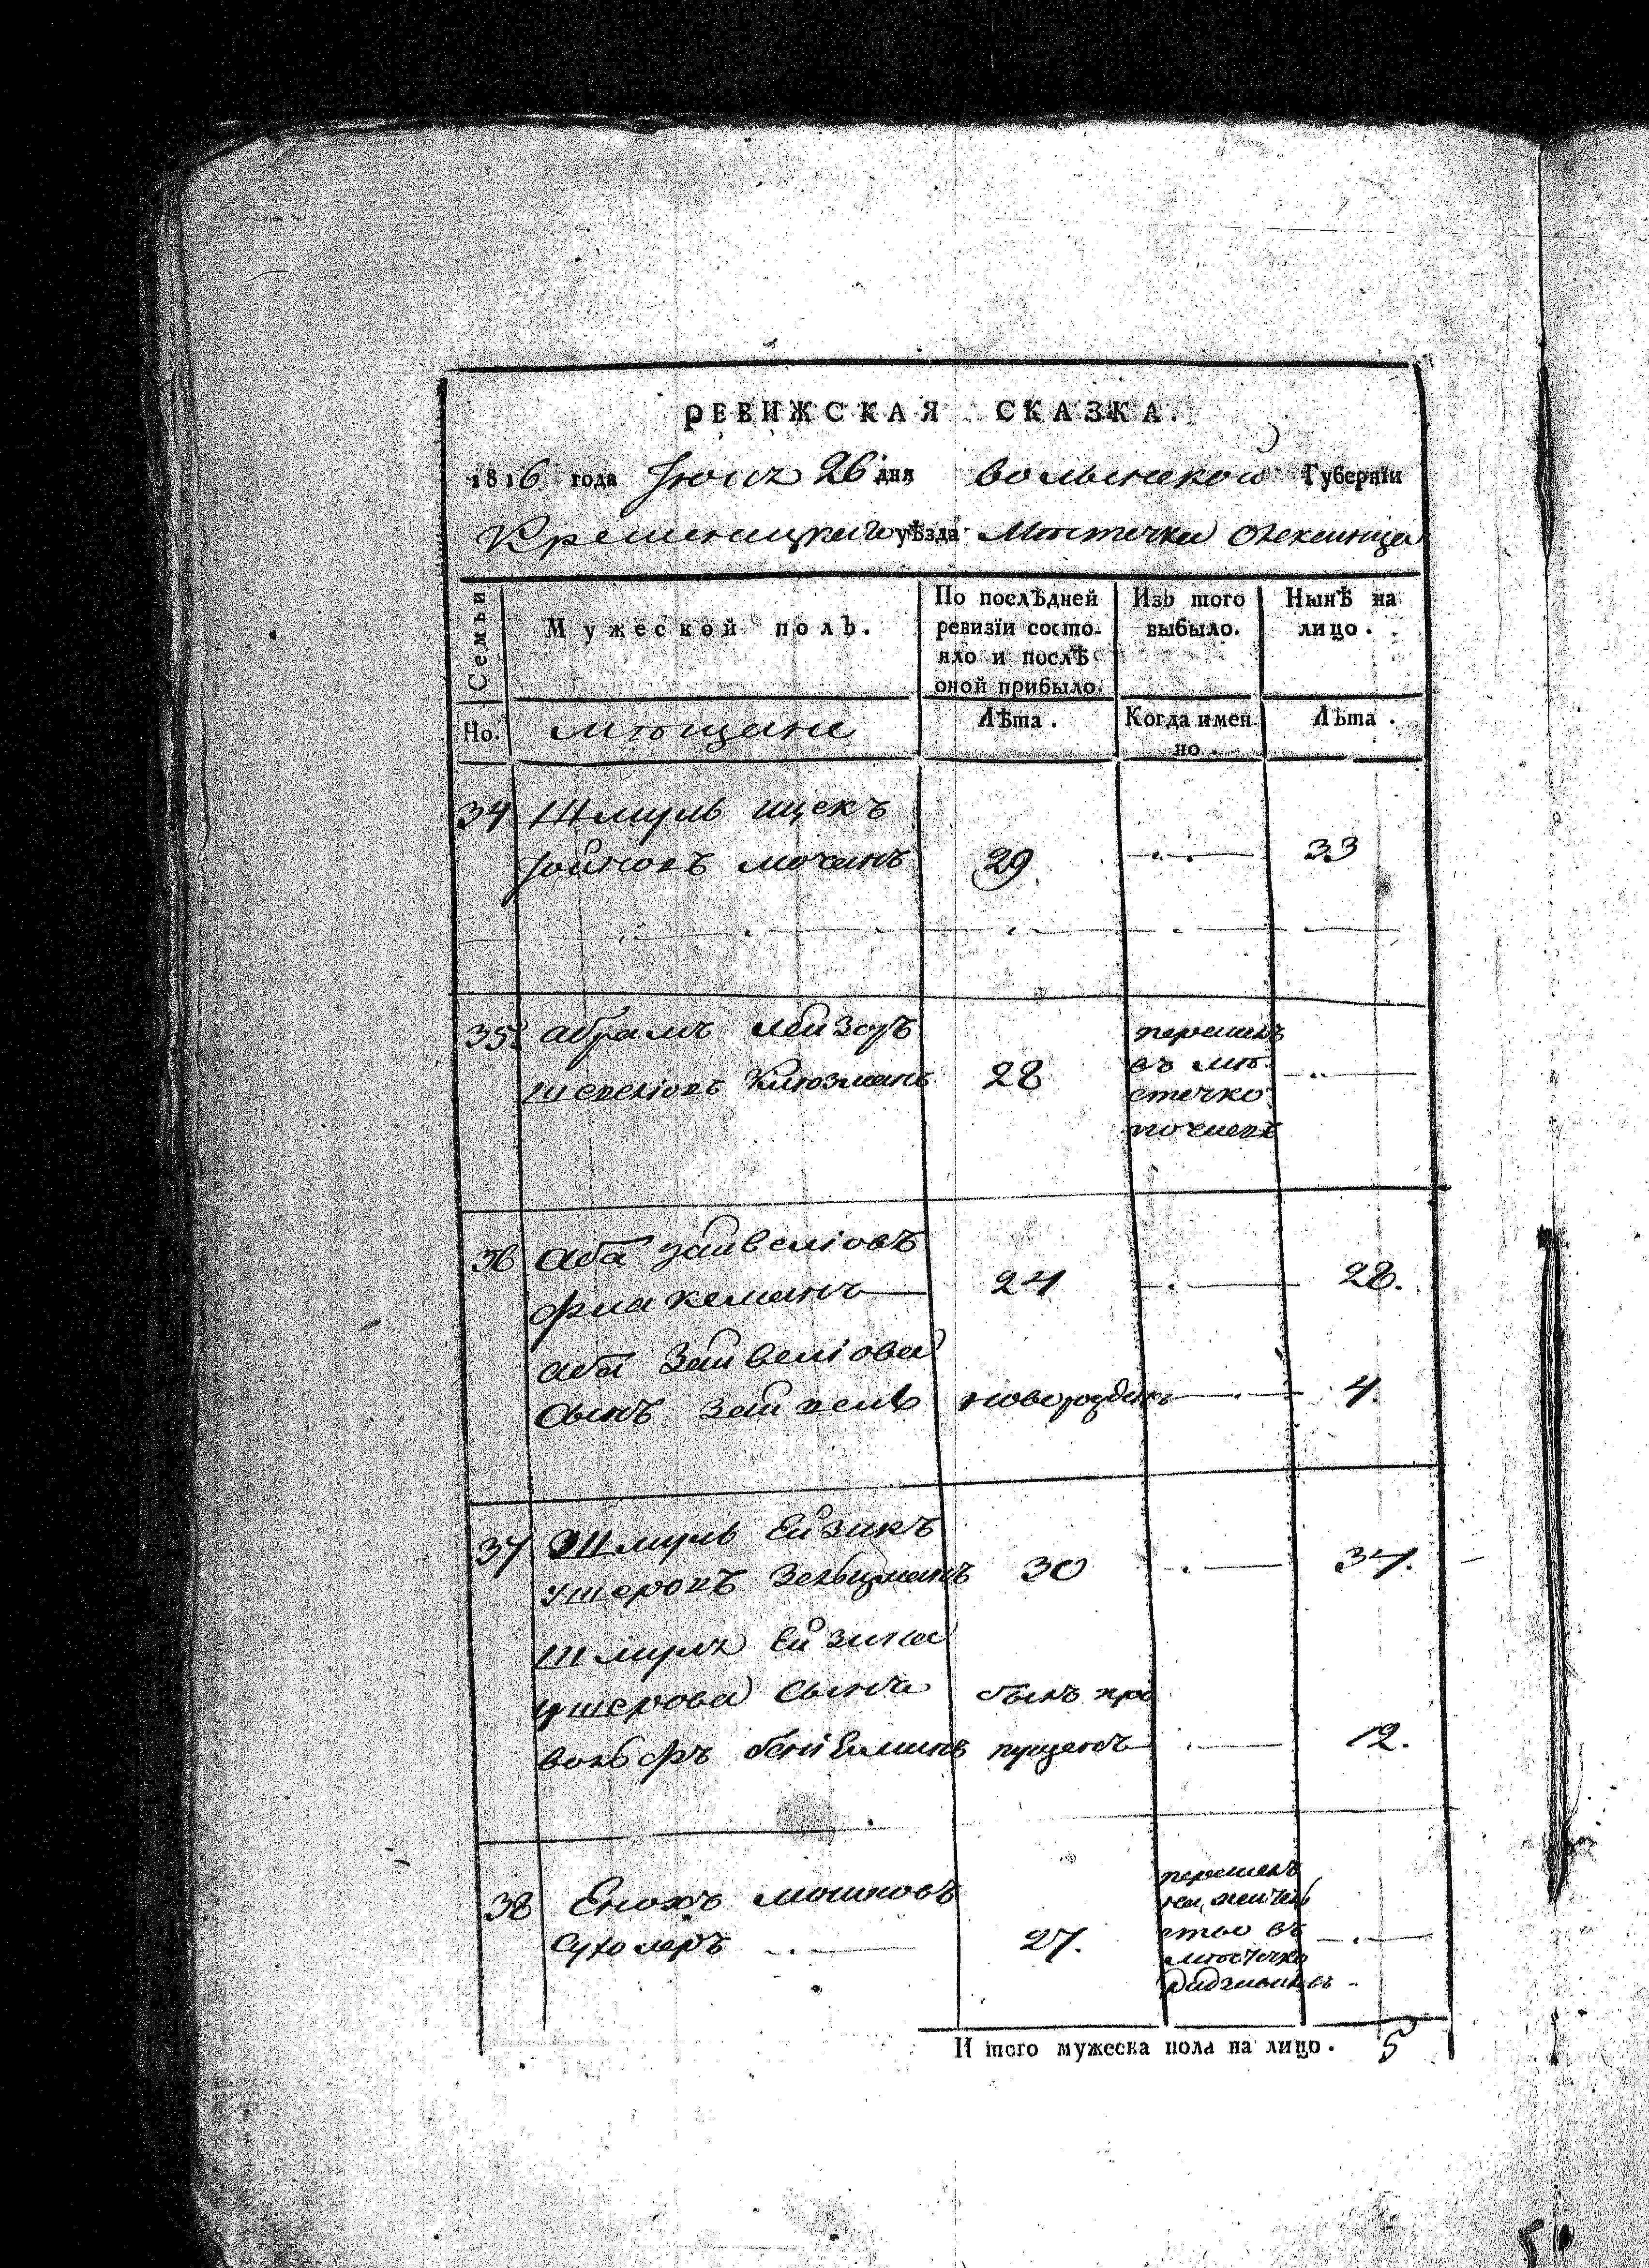 РЕВИЖСКАЯ СКАЗКА.
1816 года Июня 26 дня волынской Губернїи
Кременицкаго уѣзда Мѣстечка Олексинца
Семьи
Мужеской полъ.
По послѣдней
ревизїи состо-
яло и послѣ
оной прибыло.
Изъ того
выбыло.
Нынѣ на
лицо.
Но.
мѣщане
Лѣта.
Когда имен-
но.
Лѣта.
34 Шмуль ицекъ
29 33
35 абрамъ лейзоръ
28
перешелъ
въ мѣ-
стечко
36 Аба Зайвелїовъ
24 28.
аба Зайвелїова
сынъ новорожденъ 4.
37 Шмуль Ейзикъ
Зельцманъ 30 34.
Шмуля Ейзика
ушерова сынъ былъ про
вольфъ бенїеминъ пущенъ 12.
38 Енохъ мошковъ
27.
перешелъ
на жител
ство въ
мѣстечко
Итого мужеска пола на лицо. 5